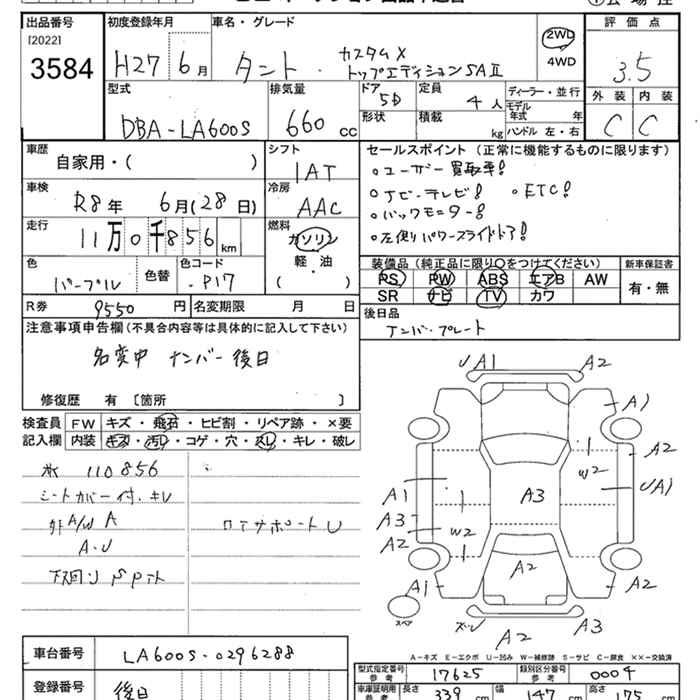 出品番号 初度登録年月 車名・グレード 評価点
[2022]
3584 H27 6月 タント カスタムX
トップエディションSAⅡ
2WD
4WD
3.5
型式 排気量 ドア 定員 ディーラー・並行 外装 内装
DBA-LA600S 660cc 5D 4人 モデル年式 年
形状 積載 kg ハンドル 左・右 C C
車歴 シフト セールスポイント(正常に機能するものに限ります)
自家用・( ) IAT ○ユーザー買取車!
車検 冷房 ○ナビ・テレビ! ○ETC!
R8年 6月(28日) AAC ○バックモニター!
走行 燃料 ○左側パワースライドドア!
11万0千856km ガソリン
軽・油
( )
色 色替 色コード
パープル P17
装備品(純正品に限り○をつけてください) 新車保証書
PS PW ABS エアB AW 有・無
SR ナビ TV カワ
R券 9550円 名変期限 月 日
後日品
ナンバープレート
注意事項申告欄(不具合内容等は具体的に記入して下さい)
名変中 ナンバー後日
修復歴 有〔箇所 〕
検査員記入欄 FW キズ・飛石・ヒビ割・リペア跡・×要
内装 キズ・汚レ・コゲ・穴・スレ・キレ・破レ
110856
シートカバー付.キレ
外A/W A
A・U
下廻り SPサト
ロアサポートU
UA1 A2
A1
A2
W2
UA1
A1 A3
A3
A2 W2
A2
A1 A2
スペア
A2 A3
A-キズ E-エクボ U-凹み W-補修跡 S-サビ C-腐食 ××-交換済
車台番号 LA600S-0296288
登録番号 後日
型式指定番号 参考 17625 類別区分番号 参考 0004
車庫証明用 参考 長さ 339cm 幅 147cm 高さ 175cm